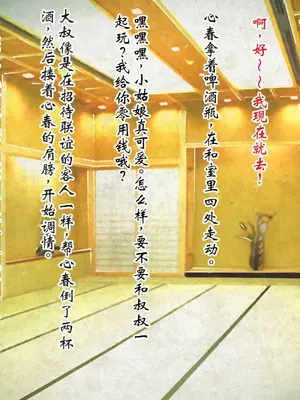 啊，好～～我现在就去！
心春拿着啤酒瓶，在和室里四处走动。
嘿嘿嘿，小姑娘真可爱。怎么样，要不要和叔叔一
起玩？我给你零用钱哦？
大叔像是在招待联谊的客人一样，帮心春倒了两杯
酒，然后接着心春的肩膀，开始调情。